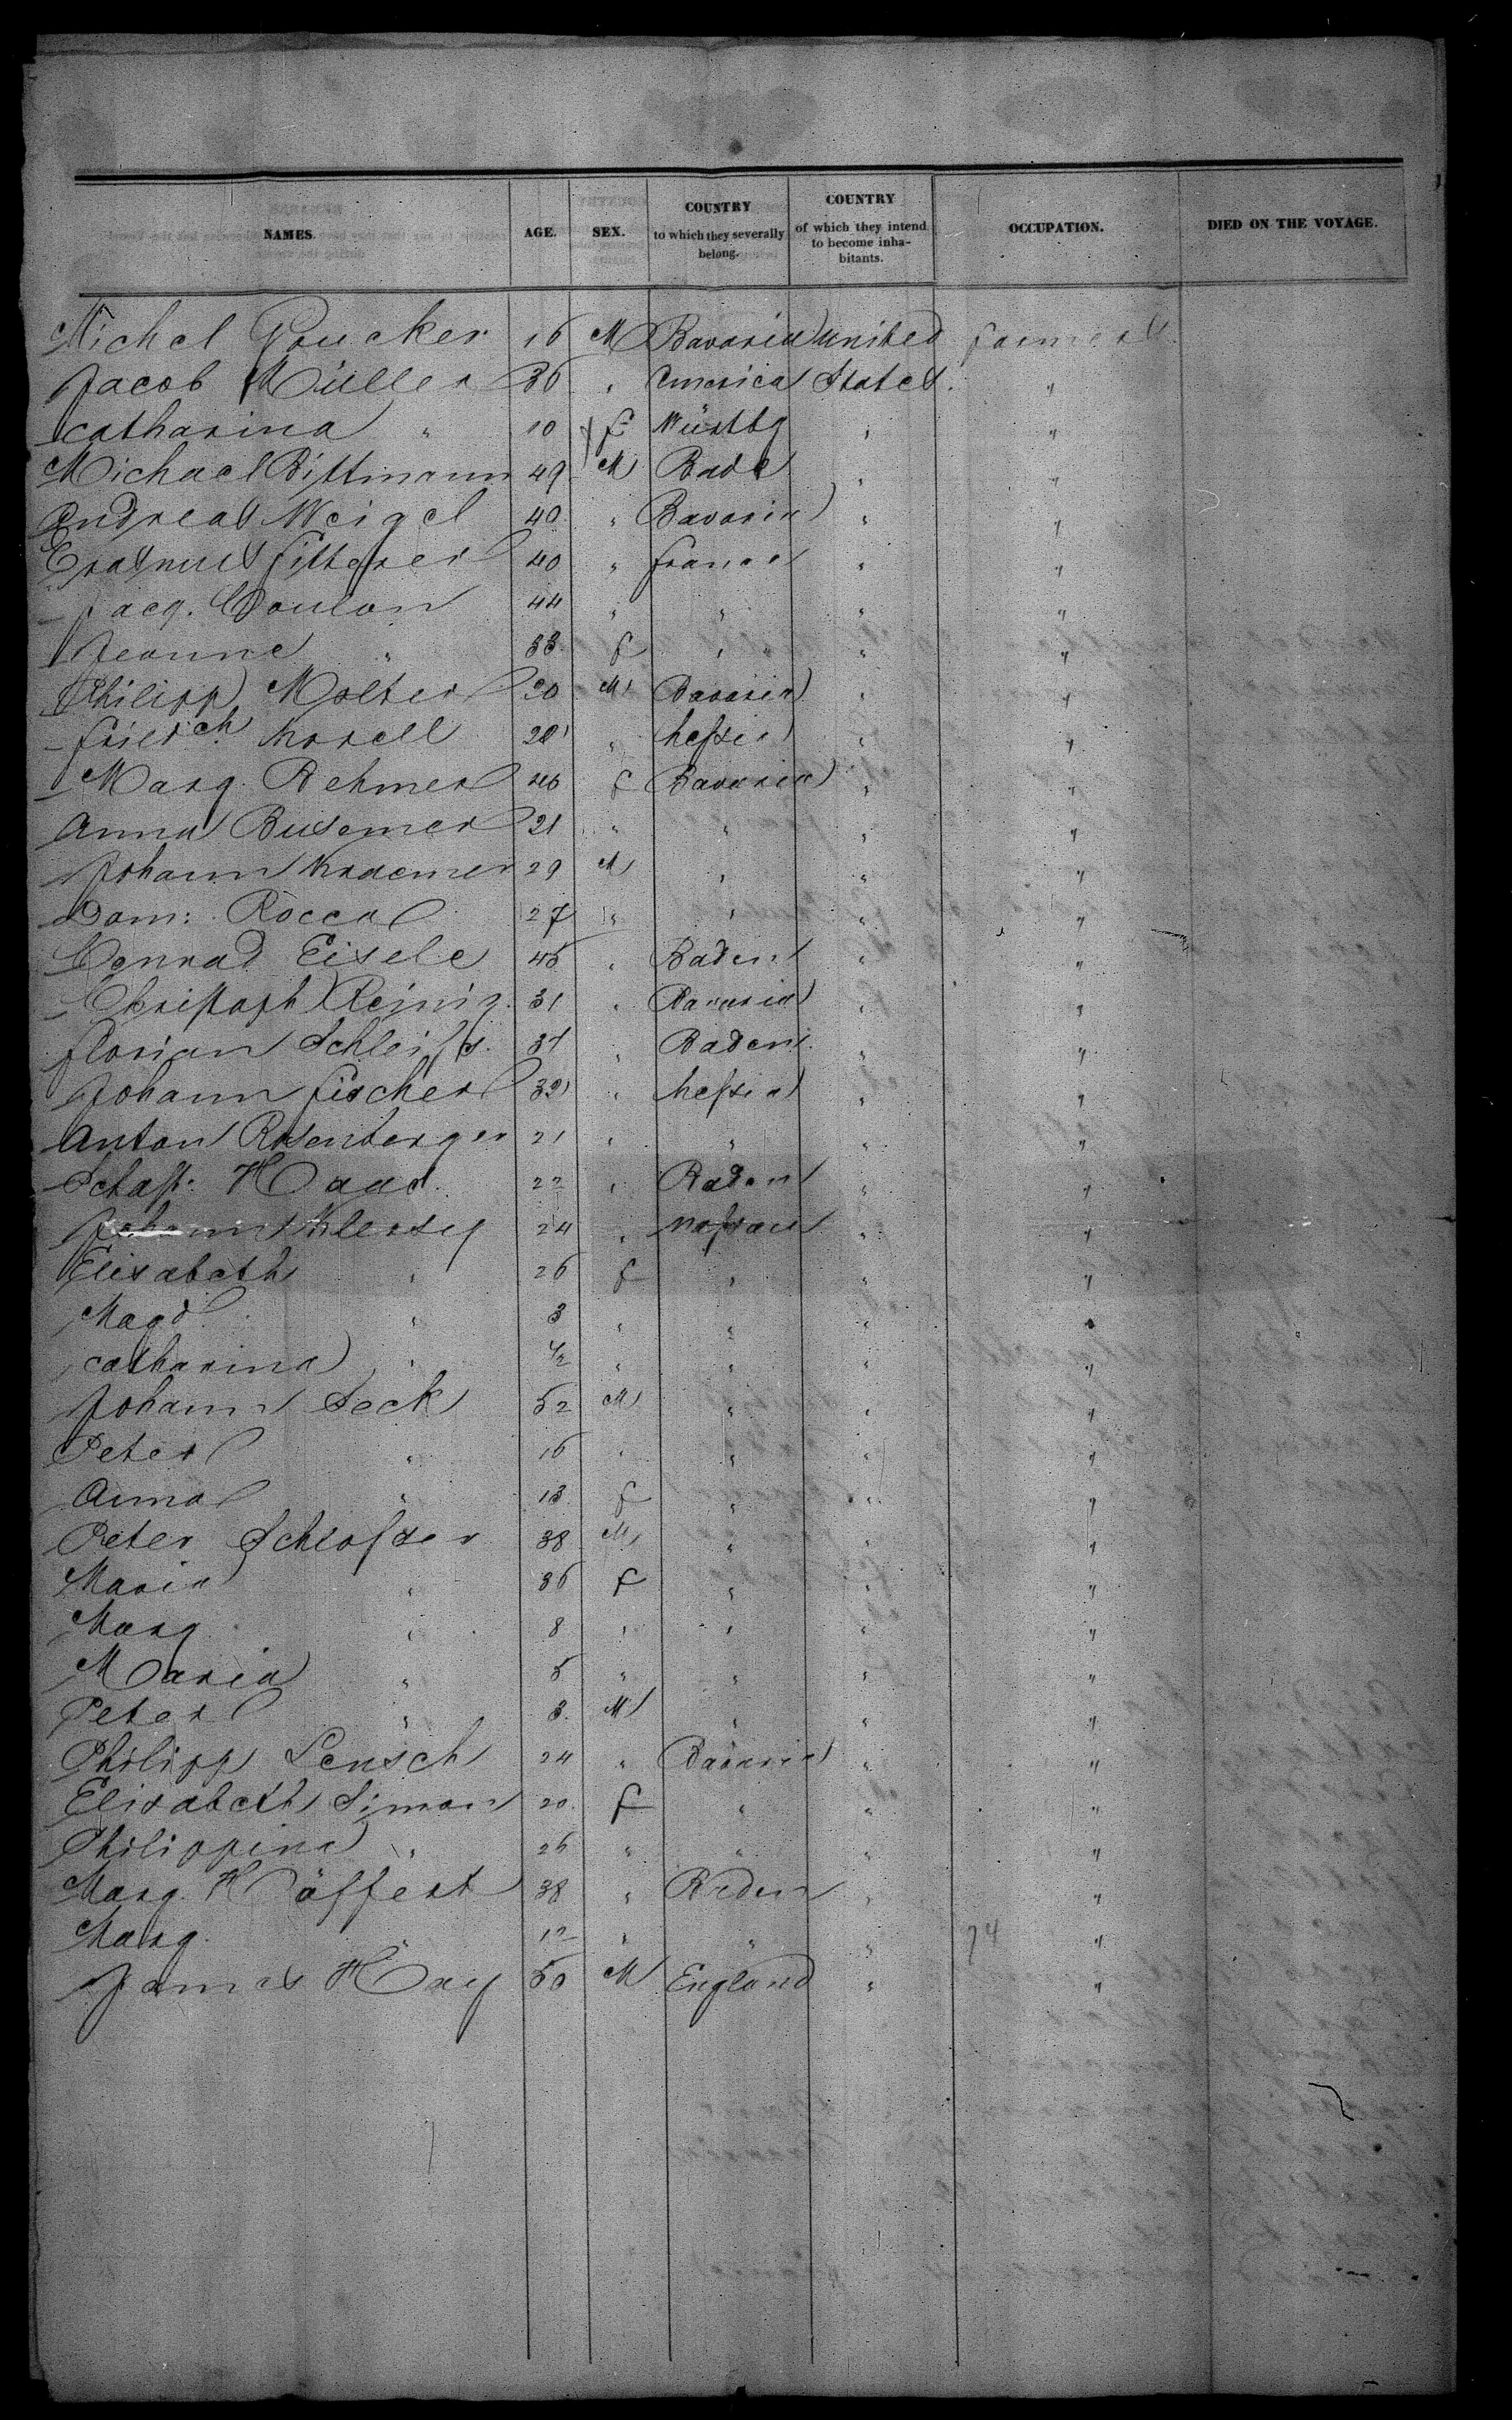 NAMES. AGE. SEX. COUNTRY to which they severally belong. COUNTRY of which they intend to become inhabitants. OCCUPATION. DIED ON THE VOYAGE.
Michel Grucker 16 M Bavaria united farmers
Jacob Müller 36 " America States "
Catharina " 10 f Würtbg " "
Michael Bittmann 49 M Bade " "
Andreas Weigel 40 " Bavaria " "
Erasmus fitterer 40 " france " "
Jacq. Coulon 44 " " " "
Jeanne " 33 f " " "
Philipp Molter 20 M Bavaria " "
friedrch Korell 20 " hessia " "
Marg. Rehmer 46 f Bavaria " "
Anna Busemer 21 " " " "
Johann Kraemer 29 M " " "
Dom: Rocca 27 " " " "
Conrad Eisele 45 " Baden " "
Christoph Reinig. 31 " Bavaria " "
florian Schleifs. 31 " Baden " "
Johann fischer 32 " hessia " "
Anton Rosenberger 21 " " " "
Sebast. Haas 22 " Baden " "
Johann Klersy 24 " nassau " "
Elisabeth " 26 f " " "
Magd " 3 " " " "
Catharina " 1/2 " " " "
Johann Seck 52 M " " "
Peter " 16 " " " "
Anna " 13 f " " "
Peter Schlosser 38 M " " "
Maria " 36 f " " "
Marg " 8 " " " "
Maria " 5 " " " "
Peter " 3 M " " "
Philipp Lensch 24 " Bavaria " "
Elisabeth Simon 20 f " " "
Philippina " 26 " " " "
Marg. Höffert 38 " Baden " "
Marg. " 12 " " " 74 "
James Hay 50 M England " "